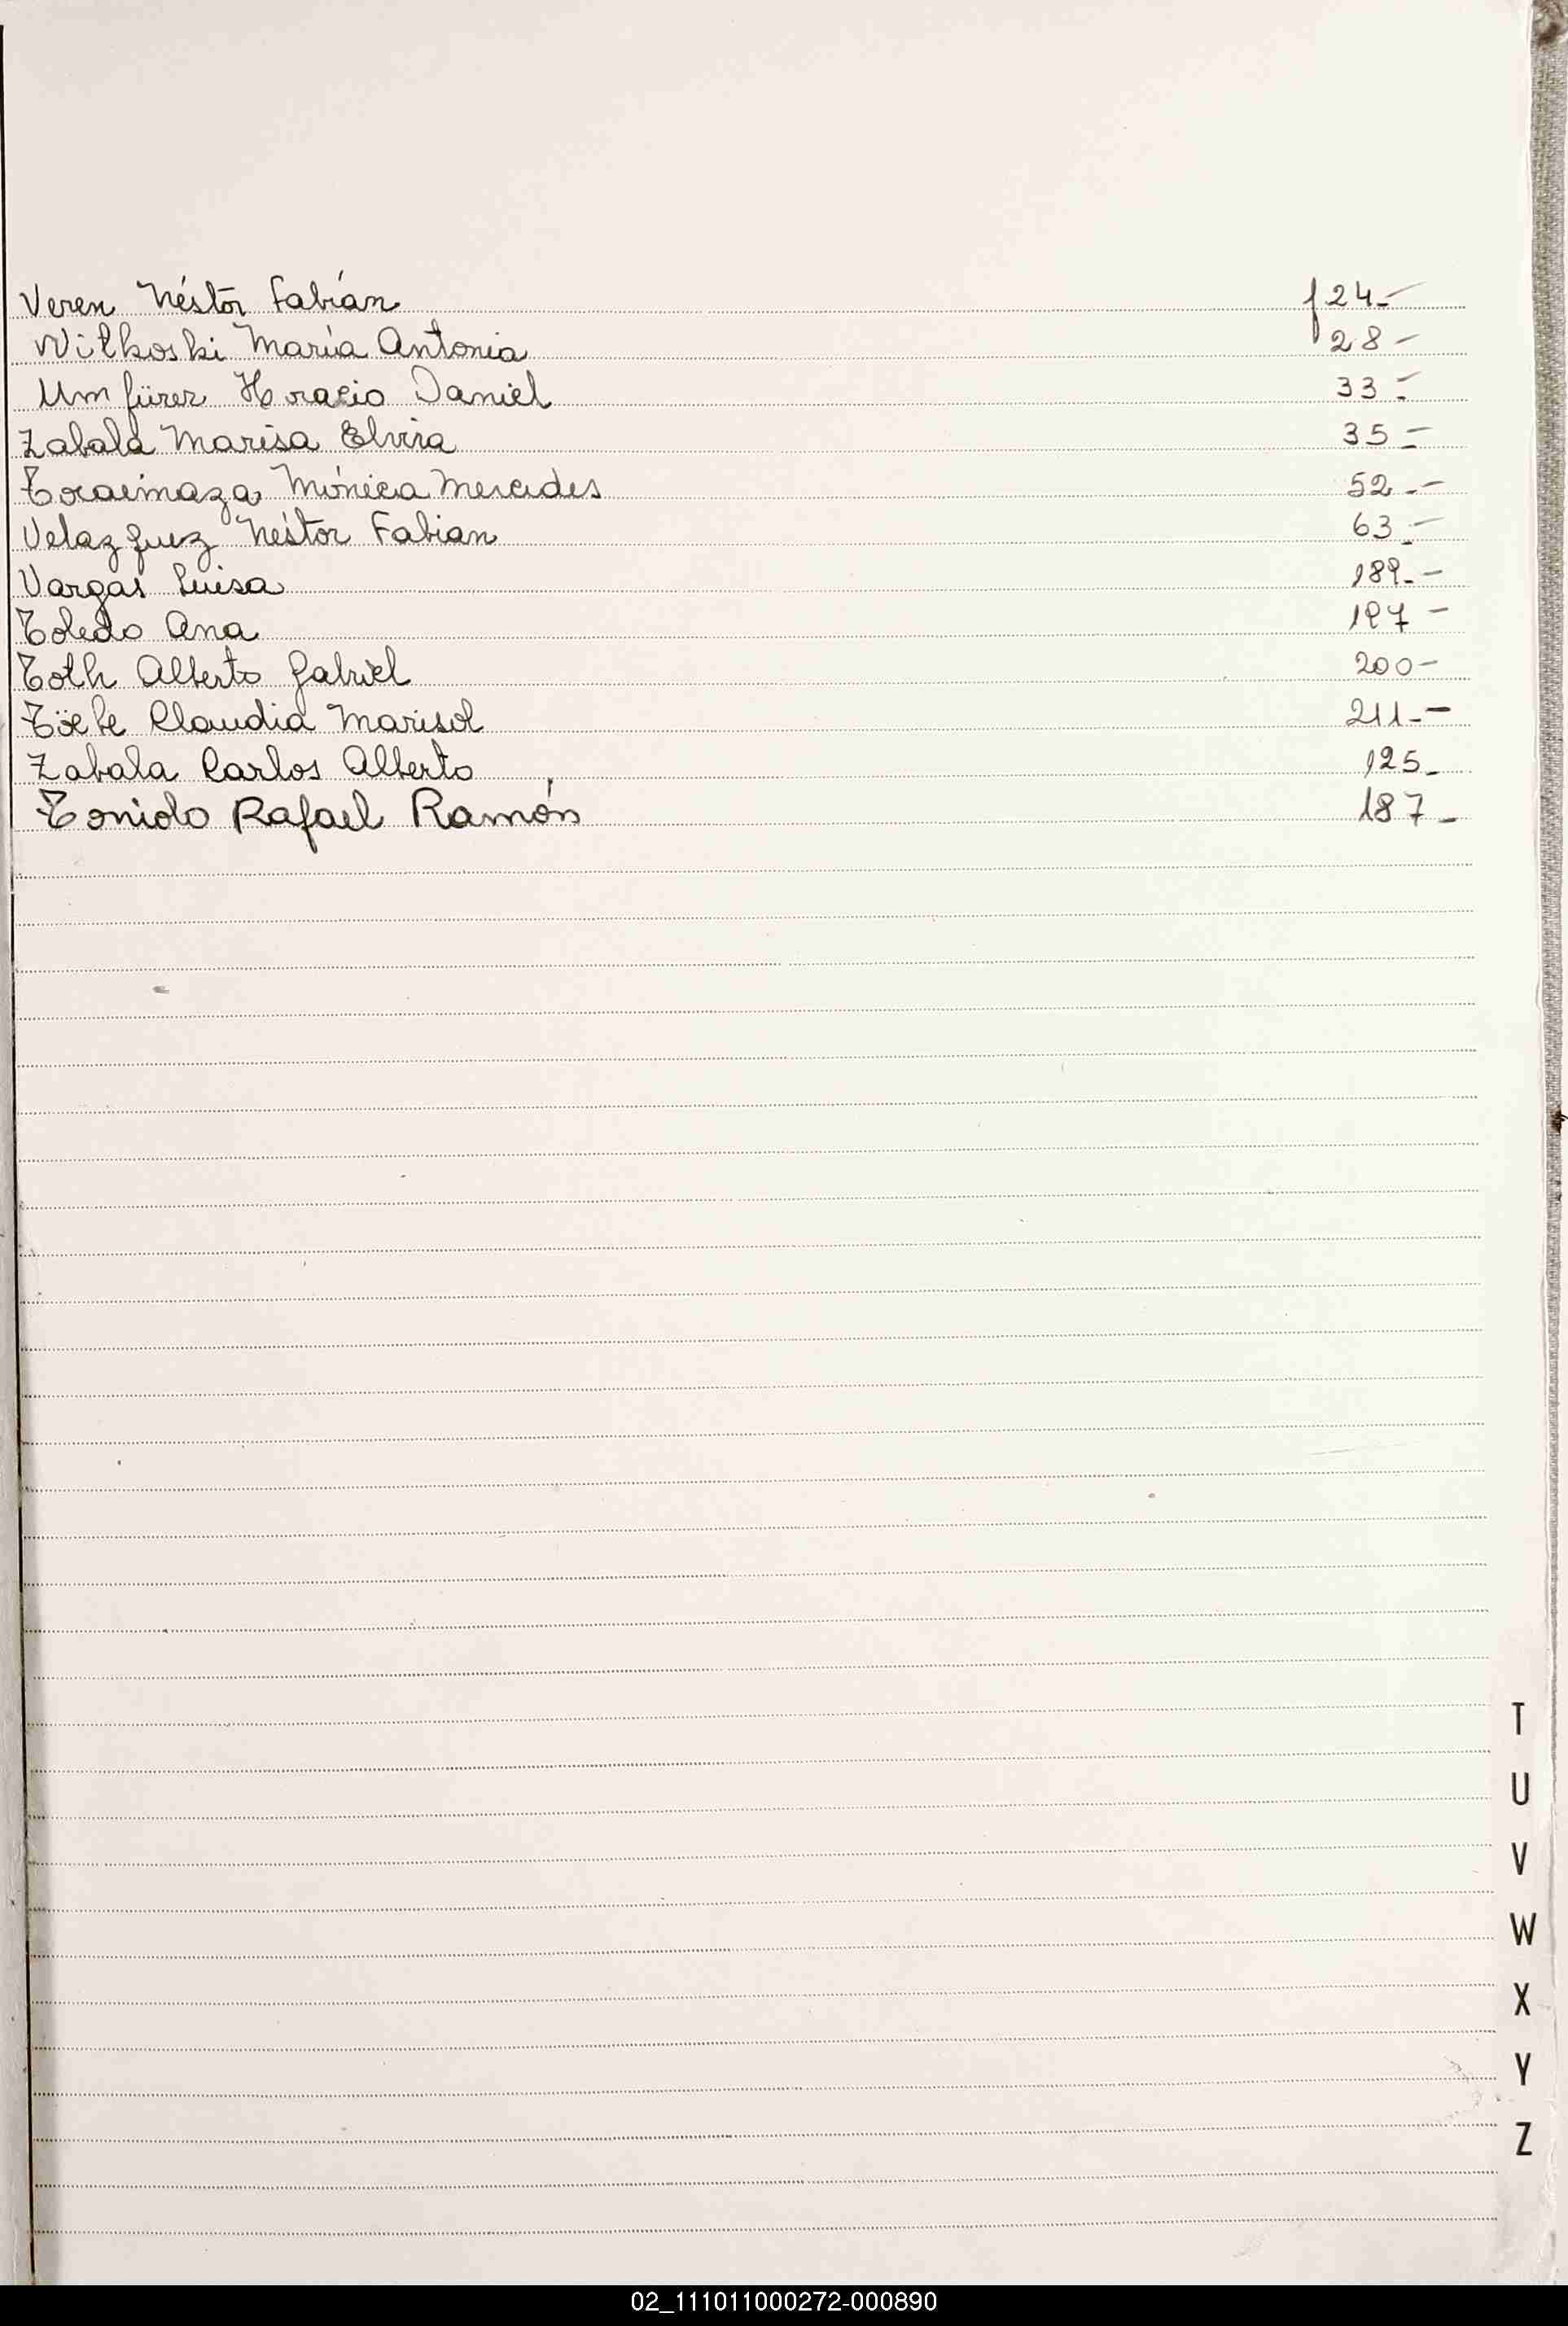 Veren Néstor Fabián f 24.-
Witkoski María Antonia 28-
Umfürer Horacio Daniel 33.-
Zabala Marisa Elvira 35.-
Mónica Mercedes 52.-
Velazquez Néstor Fabian 63.-
Vargas Luisa 189.-
Toledo Ana 197-
Toth Alberto Gabriel 200-
Claudia Marisol 211.-
Zabala Carlos Alberto 125-
Toniolo Rafael Ramón 187-
T
U
V
W
X
Y
Z
02_111011000272-000890